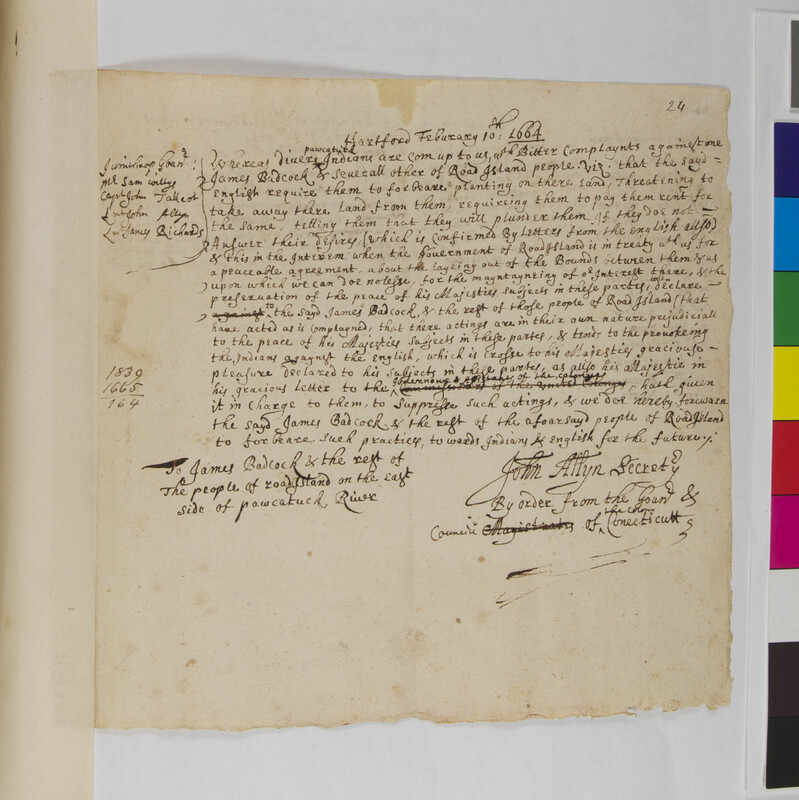 24
Hartford Feburary 10th: 1664
J winthrop Gour
mr Sam willys
Capt John Tallcot
Lnt John Allyn
Lnt James Richards
pawcatuck
Whereas divers Indians are com up to us, wth Bitter Complaynts against one
James Badcock & severall other of Road Island people. Viz: that the sayd
English require them to forbeare planting on there land, Threatening to
take away there Land from them, requireing them to pay them rent for
the same, telling them that they will plunder them if they doe not
Answer their desires, (which is confirmed By Letters from the english allso)
& this in the Interem when the Government of Road Island is in treaty wth us for
a peaceable agreement, about the layeing out of the Bounds between them & us
upon which we can doe noe lesse, for the mayntayneing of or Interest there, & the
preservation of the peace of his Majesties subjects in these partes, declare
against to the sayd James Badcock, & the rest of those people of Road Island (that
have acted as is complayned, that there actings are in their own nature prejudiciall
to the peace of his Majesties subjects in these partes, & tends to the provokeing
the Indians against the english, which is crosse to his Majesties graciouse
pleasure declared to his subjects in these partes, as allso his Majestie in
Governour & Assistants of the colonyes
his gracious Letter to the Commissioners of the United Colonyes, hath given
it in Charge to them, to suppresse such actings, & we doe hereby forwarn
the sayd James Badcock & the rest of the afoarsayd people of Road Island
to forbeare such practices, towards Indians & english for the future
1839
1665
164
To James Badcock & the rest of
The people of road Island on the east
side of pawcatuck River
John Allyn Secretry
By order from the Gournr &
the colony
Councill Magistrates of Conecticutt